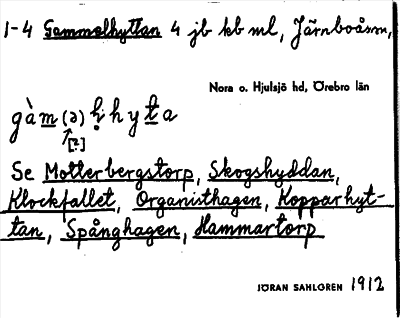 1-4 Gammelhyttan 4 jb kb ml, Järnboåsm,
Nora o. Hjulsjö hd, Örebro län
gàm(ə)ḥhyta
[?]
Se Motterbergstorp, Skogshyddan,
Klockfallet, Organisthagen, Kopparhyt-
tan, Spånghagen, Hammartorp
JÖRAN SAHLGREN 1912